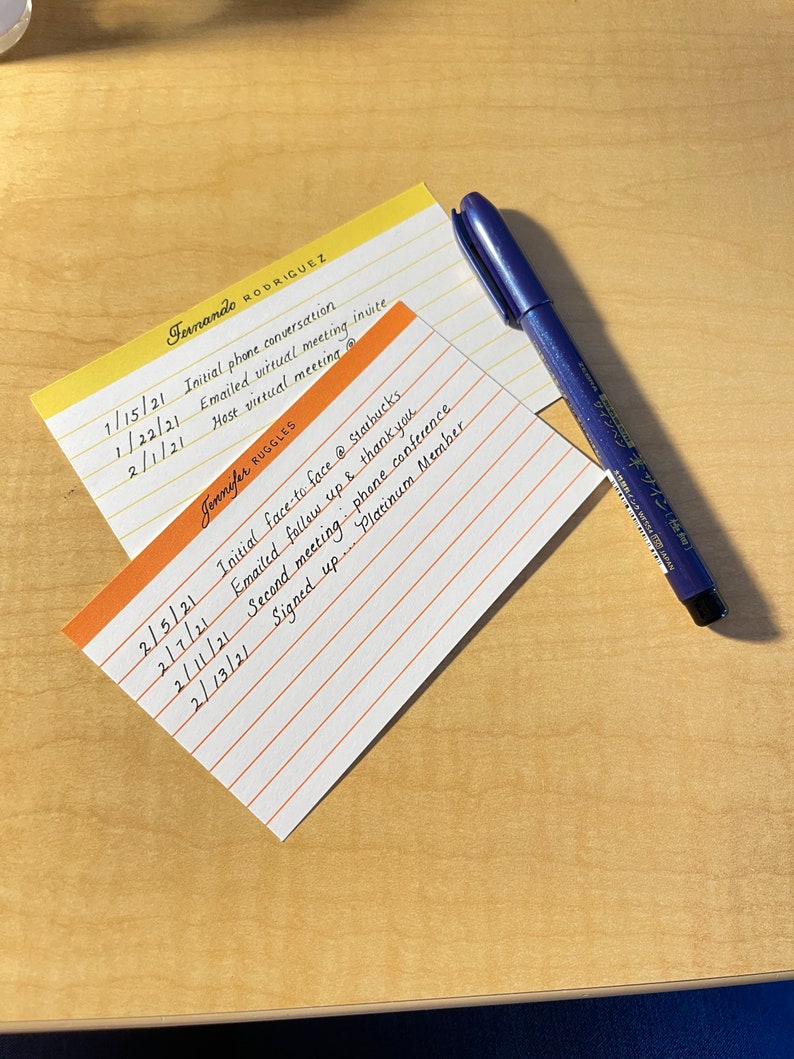 Fernando RODRIGUEZ
1/15/21 Initial phone conversation
1/22/21 Emailed virtual meeting invite
2/1/21 Host virtual meeting @
Jennifer RUGGLES
2/5/21 Initial face-to-face @ Starbucks
2/7/21 Emailed follow up & thank you
2/11/21 Second meeting: phone conference
2/13/21 Signed up... Platinum Member
ZEBRA
サインペン
水性顔料インク WFSS4 JAPAN